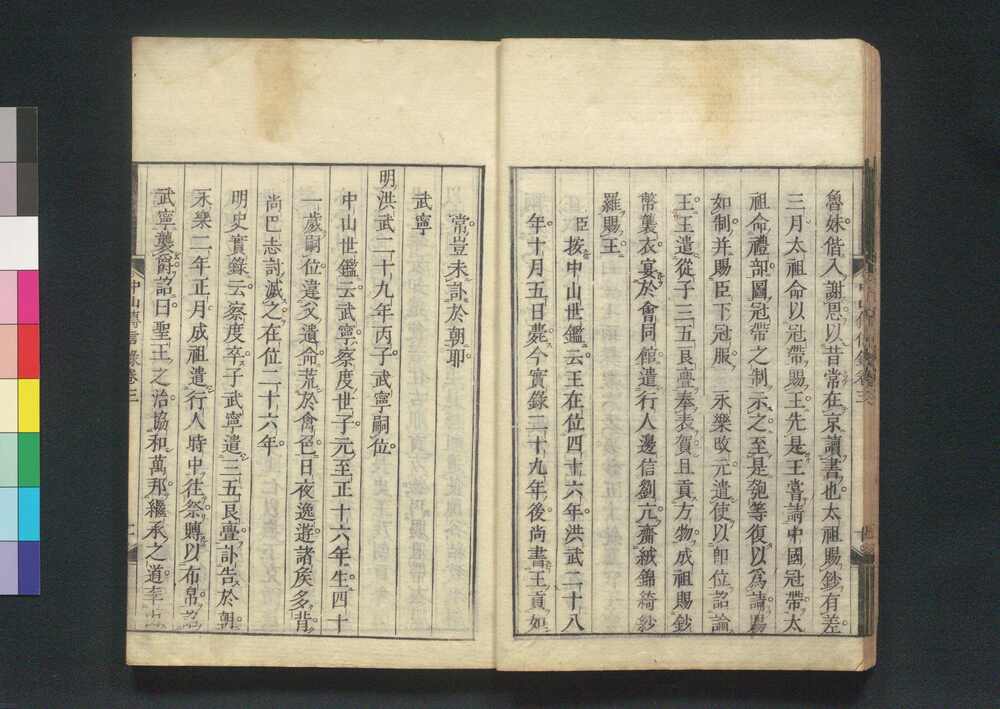 魯妹偕入謝恩以昔常在京讀書也太祖賜鈔有差
三月太祖命以冠帶賜王先是王嘗請中國冠帶太
祖命禮部圖冠帶之制示之至是匏等復以爲請賜
如制并賜臣下冠服　永樂改元遣使以卽位詔諭
王王遣從子三五良亹奉表賀且貢方物成祖賜鈔
幣襲衣宴於會同館遣行人邊信劉亢齋絨錦綺紗
羅賜王
臣按中山世鑑云王在位四十六年洪武二十八
年十月五日薨今實錄二十九年後尚書王貢如
常豈未訃於朝耶
武寧
明洪武二十九年丙子武寧嗣位
中山世鑑云武寧察度世子元至正十六年生四十
一歲嗣位違父遺命荒於禽色日夜逸遊諸矦多背
尚巴志討滅之在位二十六年
明史實錄云察度卒子武寧遣三五良亹訃告於朝
永樂二年正月成祖遣行人時中往祭賻以布帛詔
武寧襲爵詔曰聖王之治協和萬邦繼承之道
中山傳信錄卷三